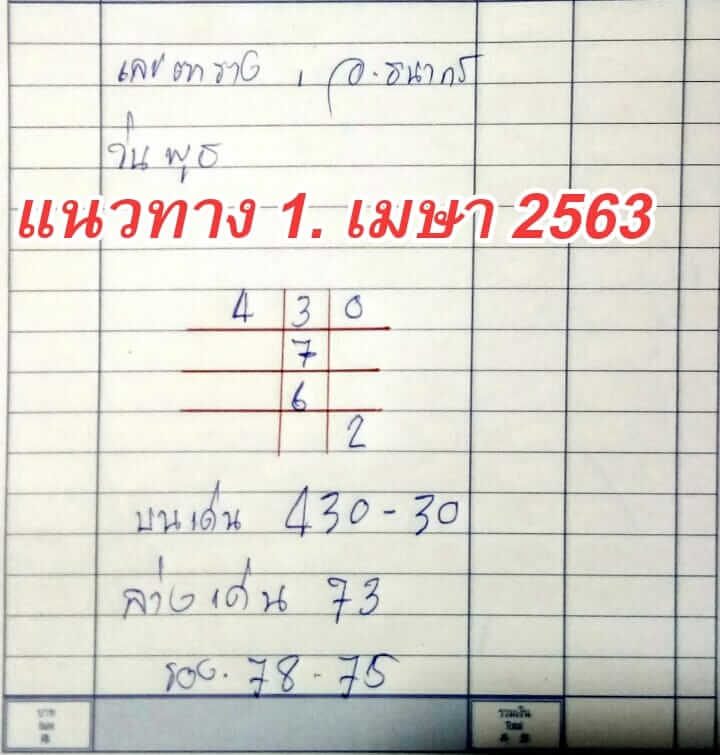 เลขตาราง , อ.ธนากร
วันพุธ
แนวทาง 1. เมษา 2563
4 3 0
7
6
2
บนเด่น 430-30
ล่างเด่น 73
รอง. 78-75
บาท
รวมเงิน
Total